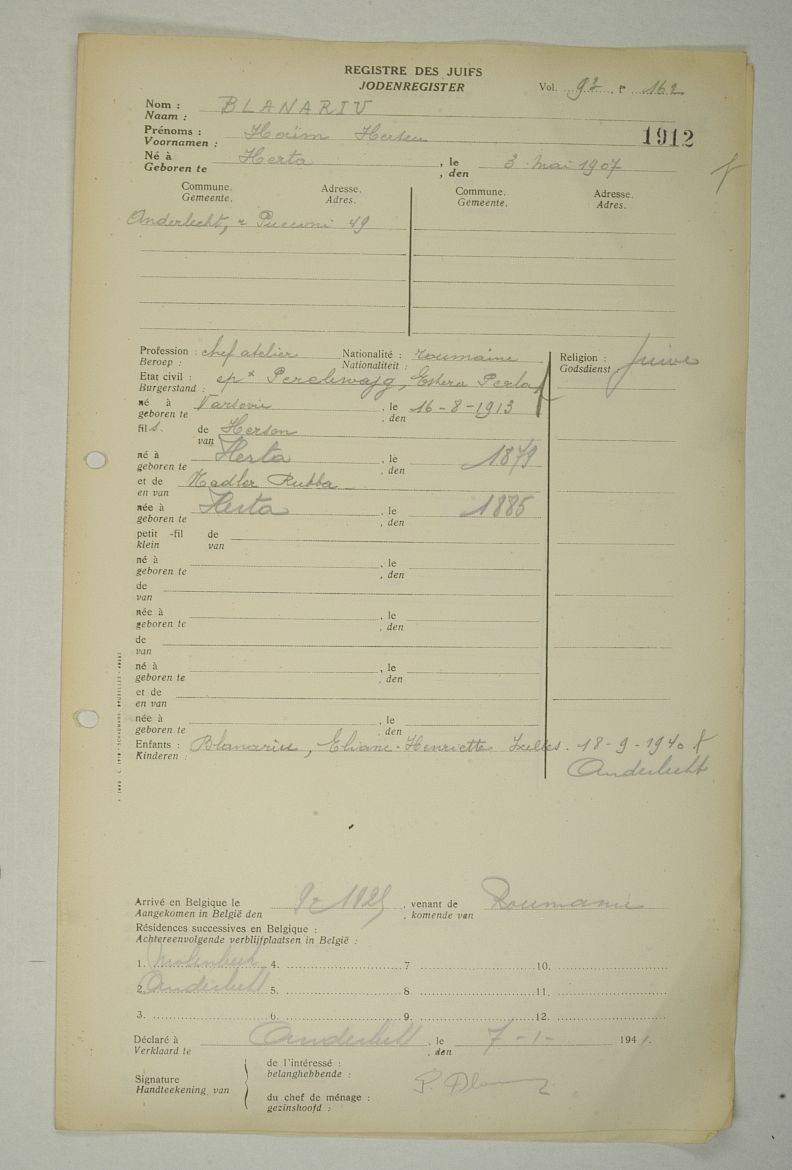 REGISTRE DES JUIFS
JODENREGISTER
Vol. 92 r 162
Nom : BLANARIU
Naam :
Prénoms : Haïm Hersen
Voornamen :
1912
Né à Herta , le 3 mai 1907
Geboren te , den
Commune. Adresse. Commune. Adresse.
Gemeente. Adres. Gemeente. Adres.
Anderlecht, r Puccini 49
Profession : chef atelier Nationalité : roumaine Religion : juive
Beroep : Nationaliteit : Godsdienst :
Etat civil : ep x Perelwajg, Estera Perla
Burgerstand :
né à Varsovie , le 16-8-1913
geboren te , den
fils. de Herson
van
né à Herta , le 1879
geboren te , den
et de Nadler Rubba
en van
née à Herta , le 1885
geboren te , den
petit -fil de
klein van
né à , le
geboren te , den
de
van
née à , le
geboren te , den
de
van
né à , le
geboren te , den
et de
en van
née à , le
geboren te , den
Enfants : Blanariu, Eliane-Henriette Ixelles. 18-9-1940
Kinderen :
Anderlecht
Arrivé en Belgique le 1925 , venant de Roumanie
Aangekomen in België den , komende van
Résidences successives en Belgique :
Achtereenvolgende verblijfplaatsen in België :
1. Molenbeek 4. 7 10.
2. Anderlecht 5. 8. 11.
3. 6. 9. 12.
Déclaré à Anderlecht , le 7-1- 1941.
Verklaard te , den
de l'intéressé :
belanghebbende :
Signature
Handteekening van
du chef de ménage :
gezinshoofd :